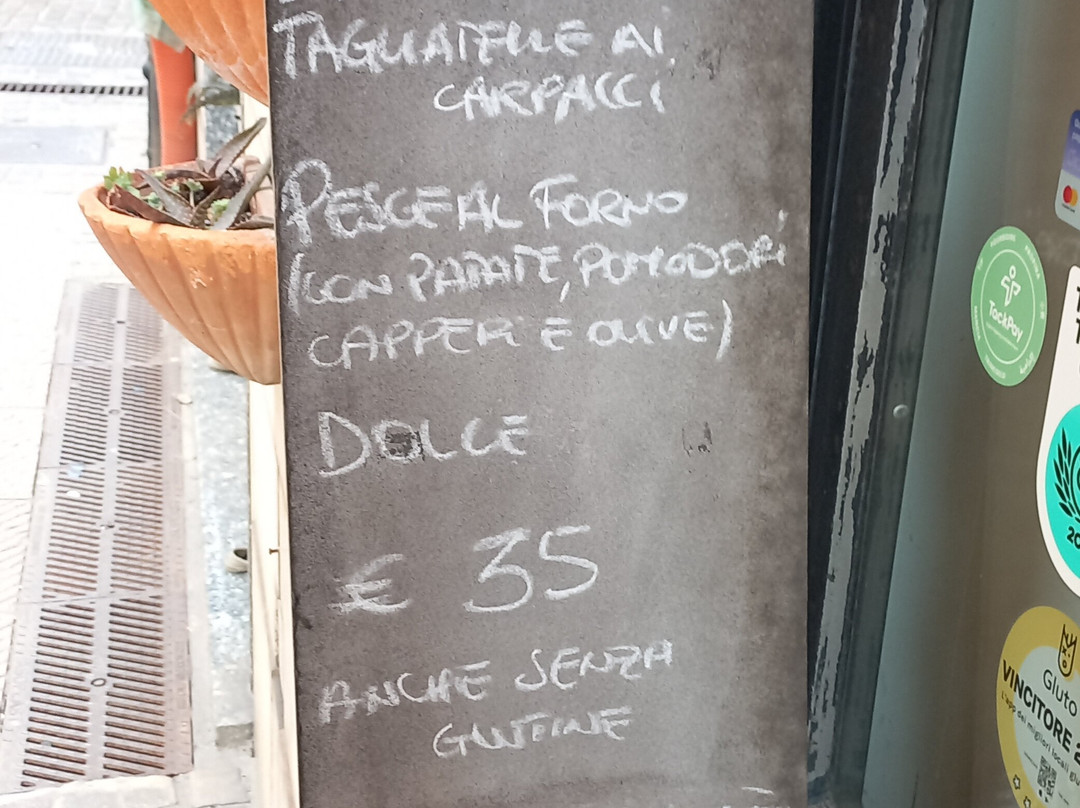 TAGLIATELLE AI
CARPACCI
PESCE AL FORNO
(CON PATATE, POMODORI
CAPPERI E OLIVE)
DOLCE
€ 35
ANCHE SENZA
GLUTINE
TackPay
Gluto
VINCITORE 2
L'app dei migliori locali glu
20